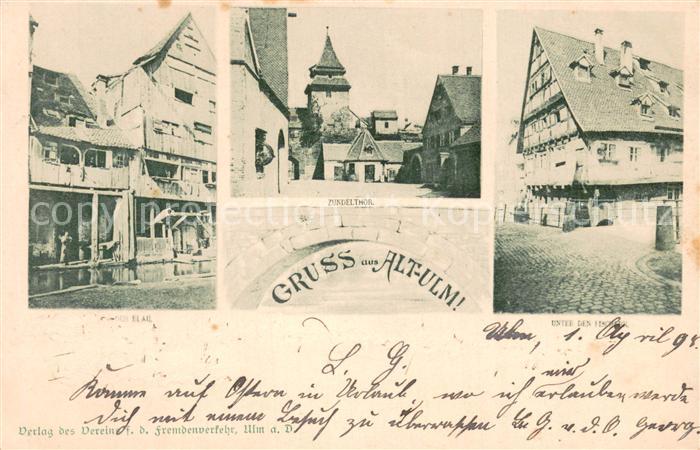 ZUNDELTHOR.
GRUSS aus ALT-ULM!
DER BLAU.
UNTER DEN FISCHERN.
Ulm, 1. April 98.
L. G.
Komme auf Ostern in Urlaub, wo ich mir erlauben werde
Dich mit einem Besuch zu überraschen B. G. v. d. O. Georg.
Verlag des Vereins f. d. Fremdenverkehr, Ulm a. D.
copyright protection